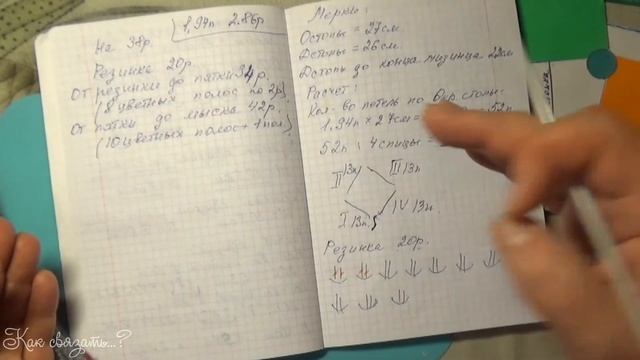 На 38р.
1,94п 2.86р
Резинка 20р.
От резинки до пятки 34р.
(8 цветных полос по 2р)
От пятки до мыска 42р.
(10 цветных полос + 1 пол.)
Мерки:
Остопы = 27см
Дстопы = 26см.
Дстопы до конца мизинца 22см
Расчет:
Кол-во петель по Окр. стопы:
1,94п х 27см = 52п
52п : 4 спицы =
II 13п III 13п
I 13п. IV 13п.
Резинка 20р.
Как связать...?